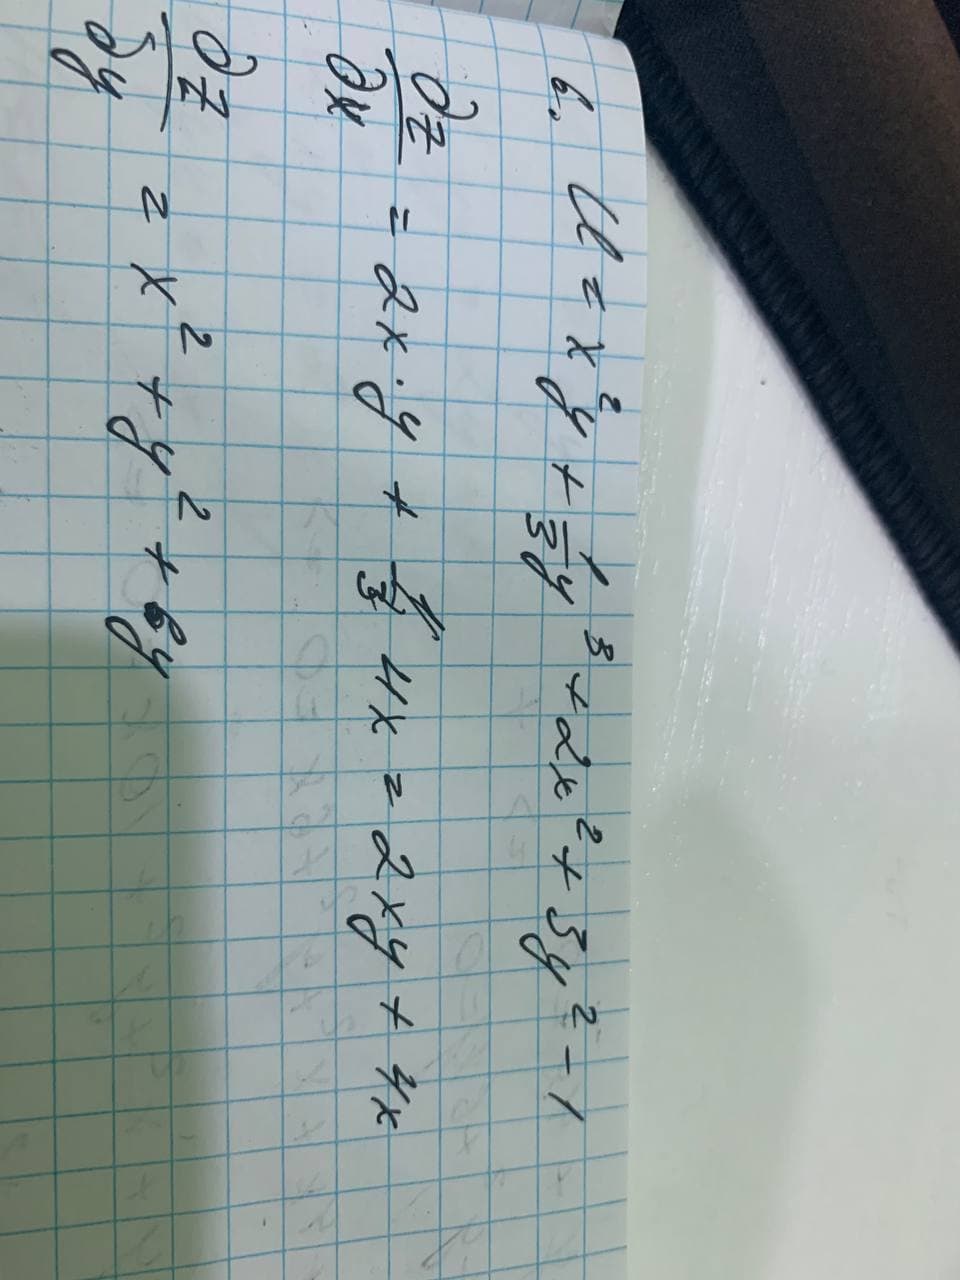 6. U = x²y + 1/3 y³ + 2x² + 3y² - 1
∂z/∂x = 2x·y + 4x = 2xy + 4x
∂z/∂y = x² + y² + 6y